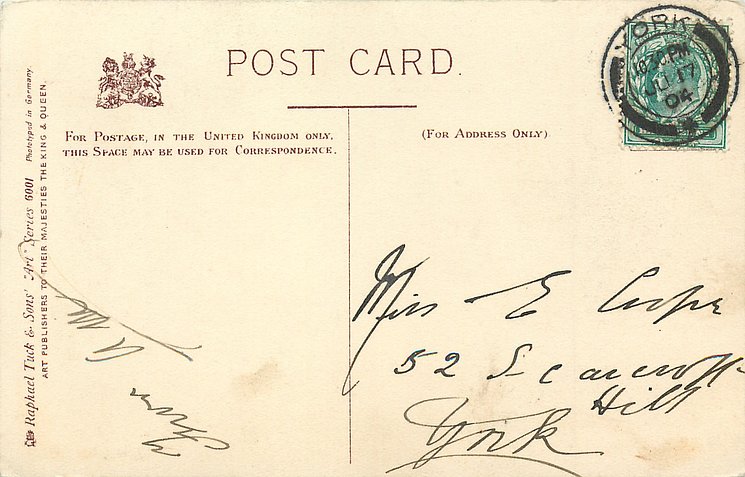 POST CARD.
FOR POSTAGE, IN THE UNITED KINGDOM ONLY,
THIS SPACE MAY BE USED FOR CORRESPONDENCE.
(FOR ADDRESS ONLY)
YORK
830 PM
JU 17
04
Raphael Tuck & Sons' "Art" Series 6001 Phototyped in Germany.
ART PUBLISHERS TO THEIR MAJESTIES THE KING & QUEEN.
From
Miss E
52 Scarcroft
Hill
York